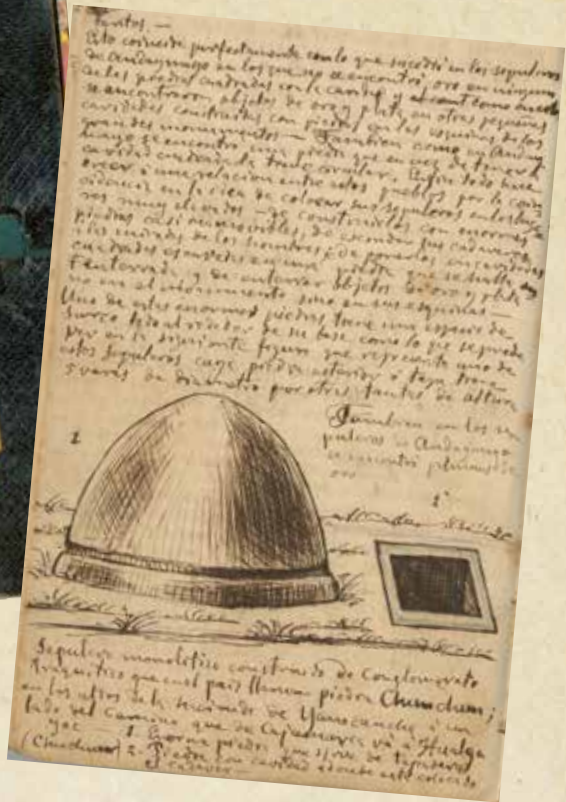 tantos. —
Esto coincide perfectamente con lo que sucedió en los sepulcros
de Andaymayo en los que no se encontró oro en ninguna
de las piedras cuadradas con la cavidad y
se encontraron objetos de oro y plata en otras pequeñas
cavidades construidas con piedras en las esquinas de los
grandes monumentos — Tambien como en Anday
mayo se encontró una piedra que en vez de tener la
cavidad cuadrada la tenia circular. En fin todo hace
creer á una relacion entre estos pueblos por la coin
cidencia en la idea de colocar sus sepulcros en los luga
res muy elevados — de construirlos con enormes
piedras casi inamovibles, de esconder sus cadaveres
á las miradas de los hombres, de ponerlos en cavidades
cuadradas escavadas en una piedra que se halla
enterrada y de enterrar objetos de oro y plata
no en el monumento sino en sus esquinas —
Una de estas enormes piedras tiene una especie de
surco todo al rededor de su base como lo que se puede
ver en la siguiente figura que representa uno de
estos sepulcros cuya piedra exterior ó tapa tiene
5 varas de diametro por otras tantas de altura
Tambien en los se
pulcros de Andaymayo
se encontró
oro
1
2
Sepulcro monolitico construido de Conglomerato
traquitico que en el pais llaman piedra Chumchum;
en los altos de la hacienda de Yanacancha á un
lado del camino que de Cajamarca vá á Hualga
yoc — 1. Enorme piedra que sirve de tapadera
(Chumchum) 2. Piedra con cavidad adonde está colocado
el cadaver —